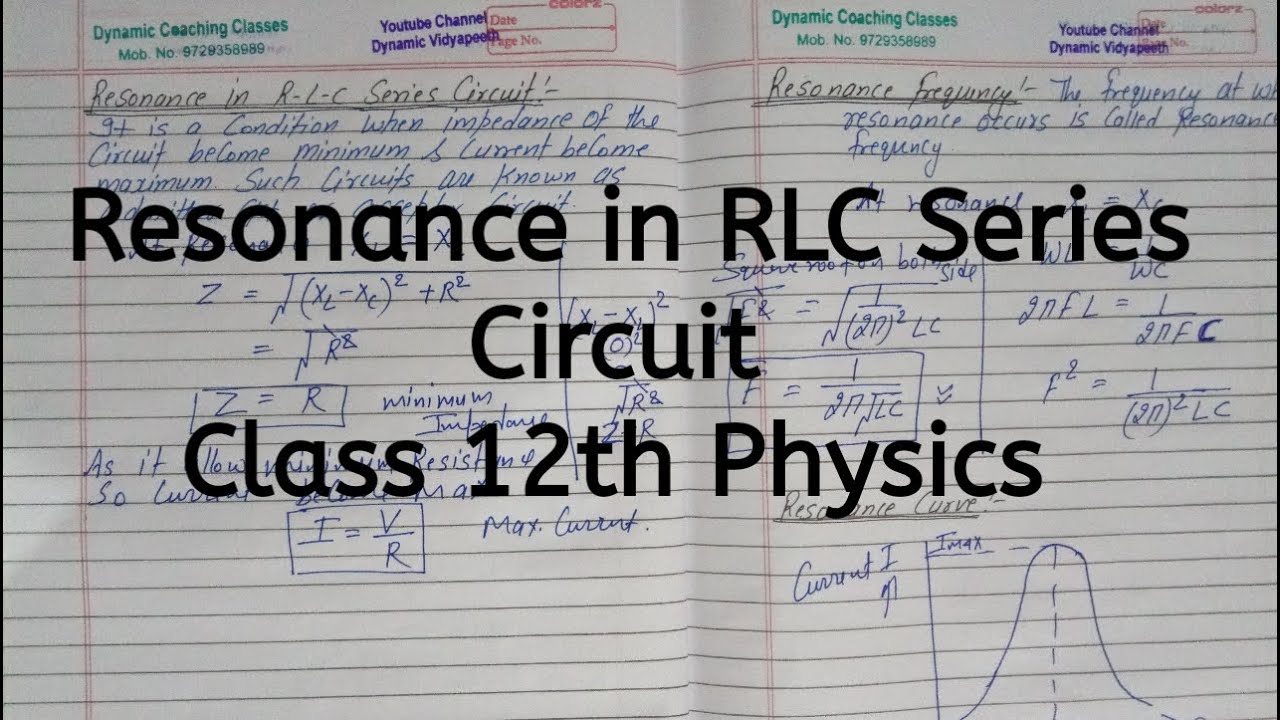 Dynamic Coaching Classes
Mob. No. 9729358989
Youtube Channel
Dynamic Vidyapeeth
colorz
Date
Page No.
Resonance in R-L-C Series Circuit:-
It is a Condition when impedance of the
Circuit become minimum & Current become
maximum. Such Circuits are known as
circuit.
Z = √(XL-XC)² + R²
= √R²
Z = R minimum
As it allow minimum Resistance
So Current become Max
I = V/R Max. Current.
√R²
Dynamic Coaching Classes
Mob. No. 9729358989
Youtube Channel
Dynamic Vidyapeeth
colorz
Date
No.
Resonance frequncy:- The frequency at
resonance occurs is Called Resonance
frequncy.
At resonance = XC
Square root on both side
WL = 1/WC
= √1/(2π)² LC
2πFL = 1/2πFC
F = 1/2π√LC
F² = 1/(2π)² LC
Resonance Curve:-
Current I
↑
Imax
Resonance in RLC Series
Circuit
Class 12th Physics